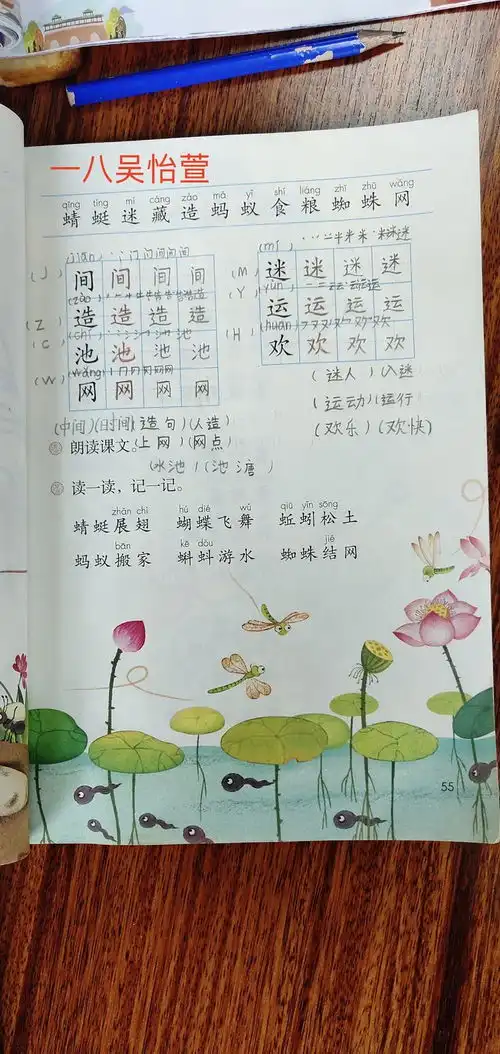 一八吴怡萱
qīng tíng mí cáng zào mǎ yǐ shí liáng zhī zhū wǎng
蜻蜓迷藏造蚂蚁食粮蜘蛛网
(J) (jiān)
间间间间
(M) (mí)
迷迷迷迷
(Z) (zào)
造造造造
(Y) (yùn)
运运运运
(C) (chí)
池池池池
(H) (huān)
欢欢欢欢
(W) (wǎng)
网网网网
(迷人) (入迷)
(运动)(运行)
(中间)(时间)(造句)(人造)
(欢乐)(欢快)
朗读课文。(上网)(网点)
(水池)(池塘)
读一读,记一记。
zhǎn chì hú dié wǔ qiū yǐn sōng
蜻蜓展翅 蝴蝶飞舞 蚯蚓松土
bān kē dǒu jié
蚂蚁搬家 蝌蚪游水 蜘蛛结网
55